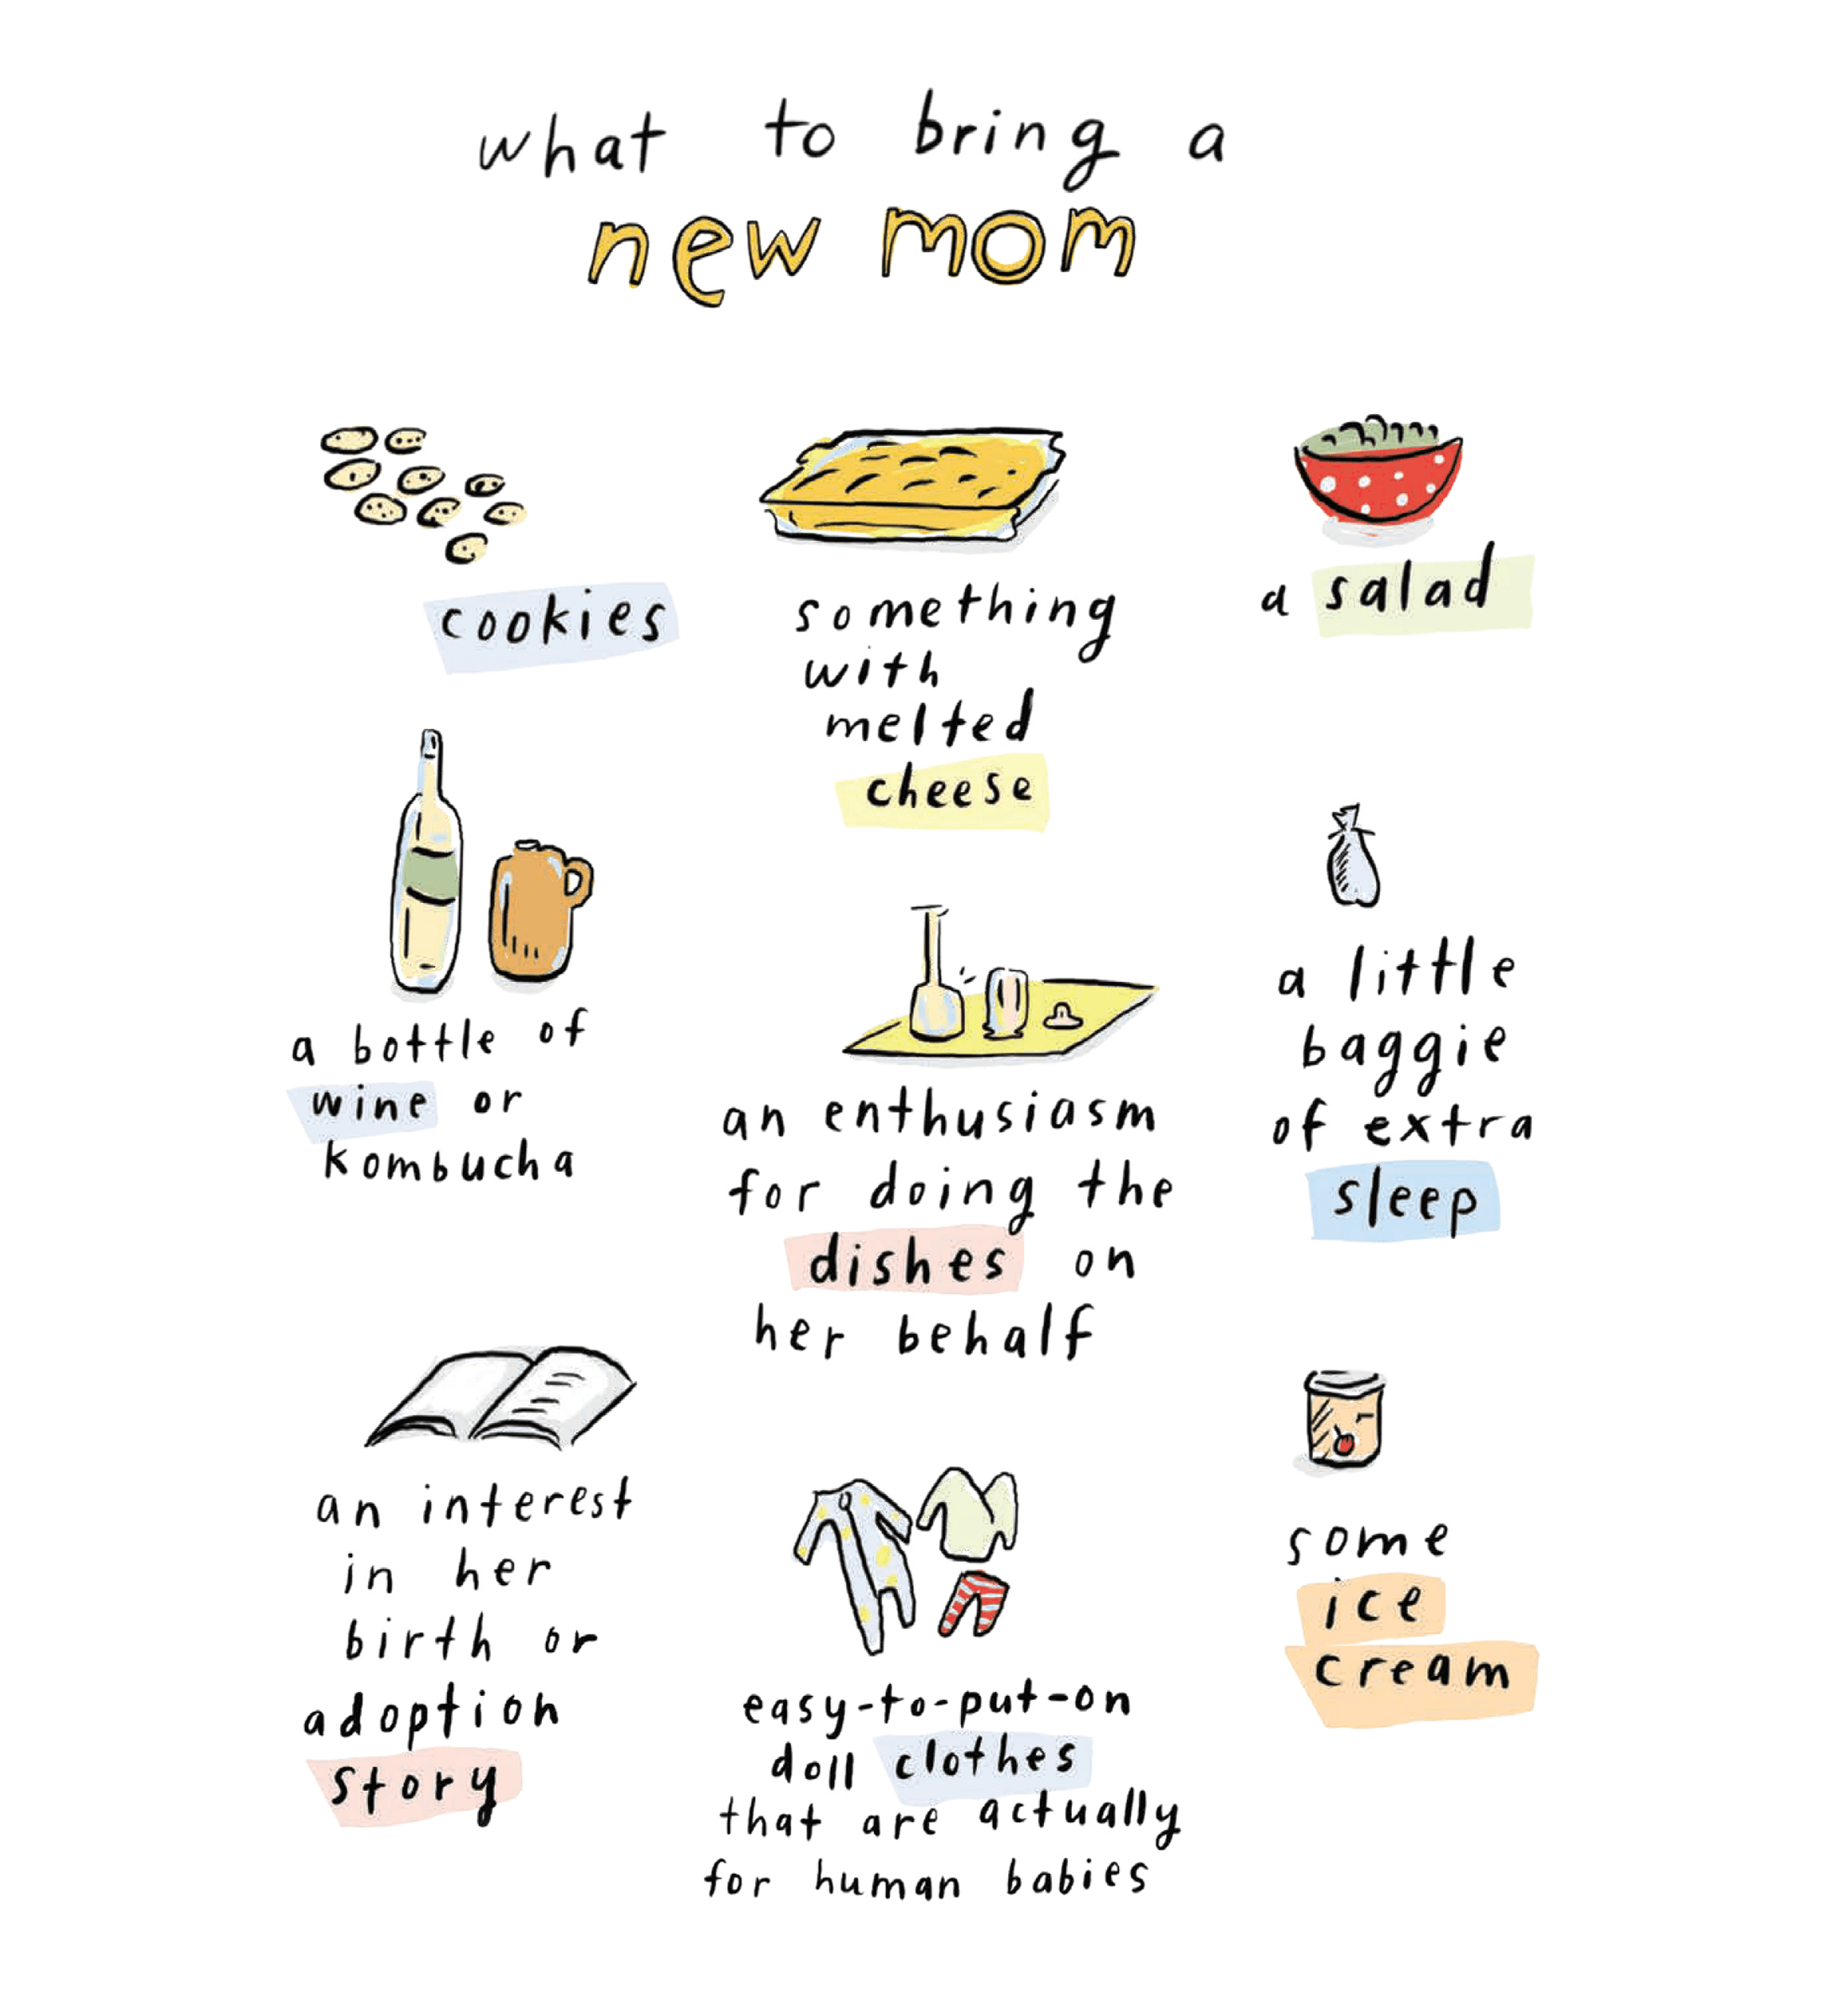 what to bring a
new mom
cookies
something
with
melted
cheese
a salad
a bottle of
wine or
kombucha
an enthusiasm
for doing the
dishes on
her behalf
a little
baggie
of extra
sleep
an interest
in her
birth or
adoption
story
easy-to-put-on
doll clothes
that are actually
for human babies
some
ice
cream